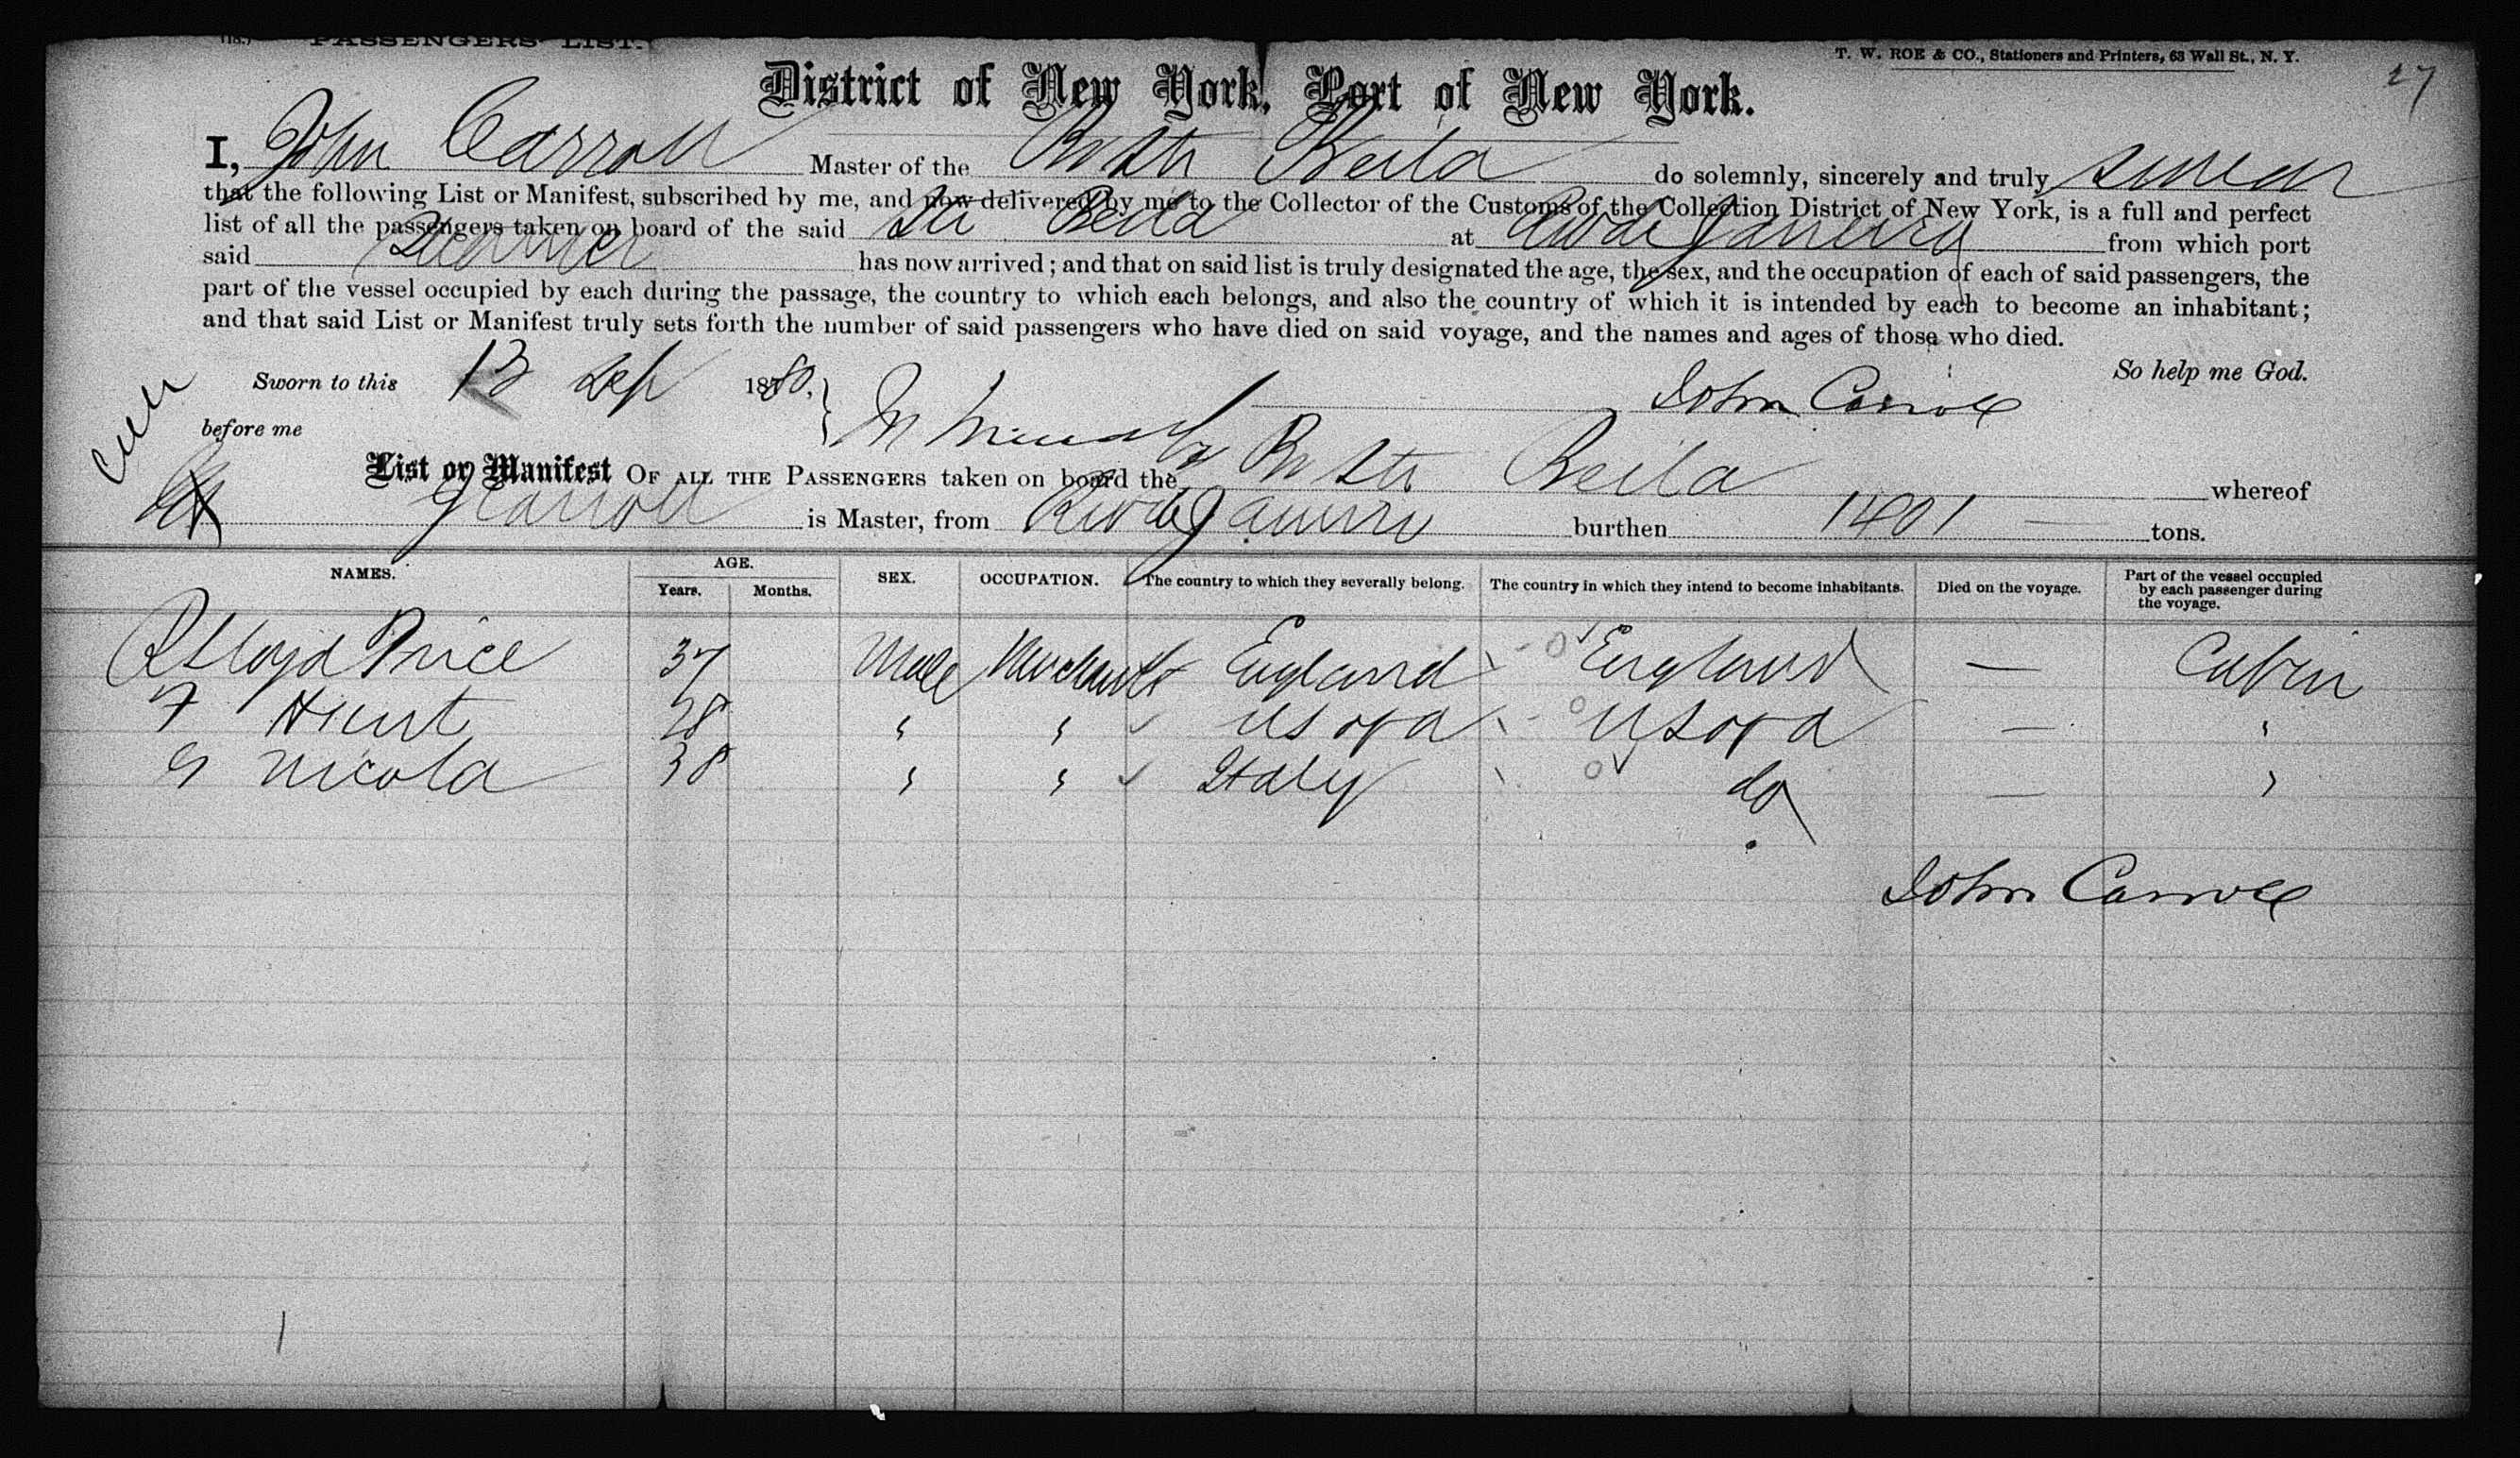 PASSENGERS' LIST.
T. W. ROE & CO., Stationers and Printers, 63 Wall St., N. Y.
27
District of New York, Port of New York.
I, John Carroll Master of the Br Str Beila do solemnly, sincerely and truly swear
that the following List or Manifest, subscribed by me, and now delivered by me to the Collector of the Customs of the Collection District of New York, is a full and perfect
list of all the passengers taken on board of the said Str Beila at Rio de Janeiro from which port
said Steamer has now arrived; and that on said list is truly designated the age, the sex, and the occupation of each of said passengers, the
part of the vessel occupied by each during the passage, the country to which each belongs, and also the country of which it is intended by each to become an inhabitant;
and that said List or Manifest truly sets forth the number of said passengers who have died on said voyage, and the names and ages of those who died.
So help me God.
Sworn to this 13 Sep 1880, John Carroll
before me
List or Manifest OF ALL THE PASSENGERS taken on board the Br Str Beila whereof
J Carroll is Master, from Rio de Janeiro burthen 1401 tons.
NAMES. AGE. Years. Months. SEX. OCCUPATION. The country to which they severally belong. The country in which they intend to become inhabitants. Died on the voyage. Part of the vessel occupied by each passenger during the voyage.
R Lloyd Price 37 Male Merchant England England — Cabin
F Hunt 28 " " US of A US of A — "
G Nicola 38 " " Italy do — "
John Carroll